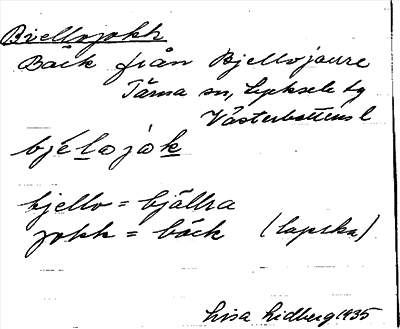 Bjellojokk
Bäck från Bjellojaure
Tärna sn, Lycksele tg
Västerbottens l
bjélojok
bjello = bjällra
jokk = bäck (lapska)
Lisa Lidberg 1935